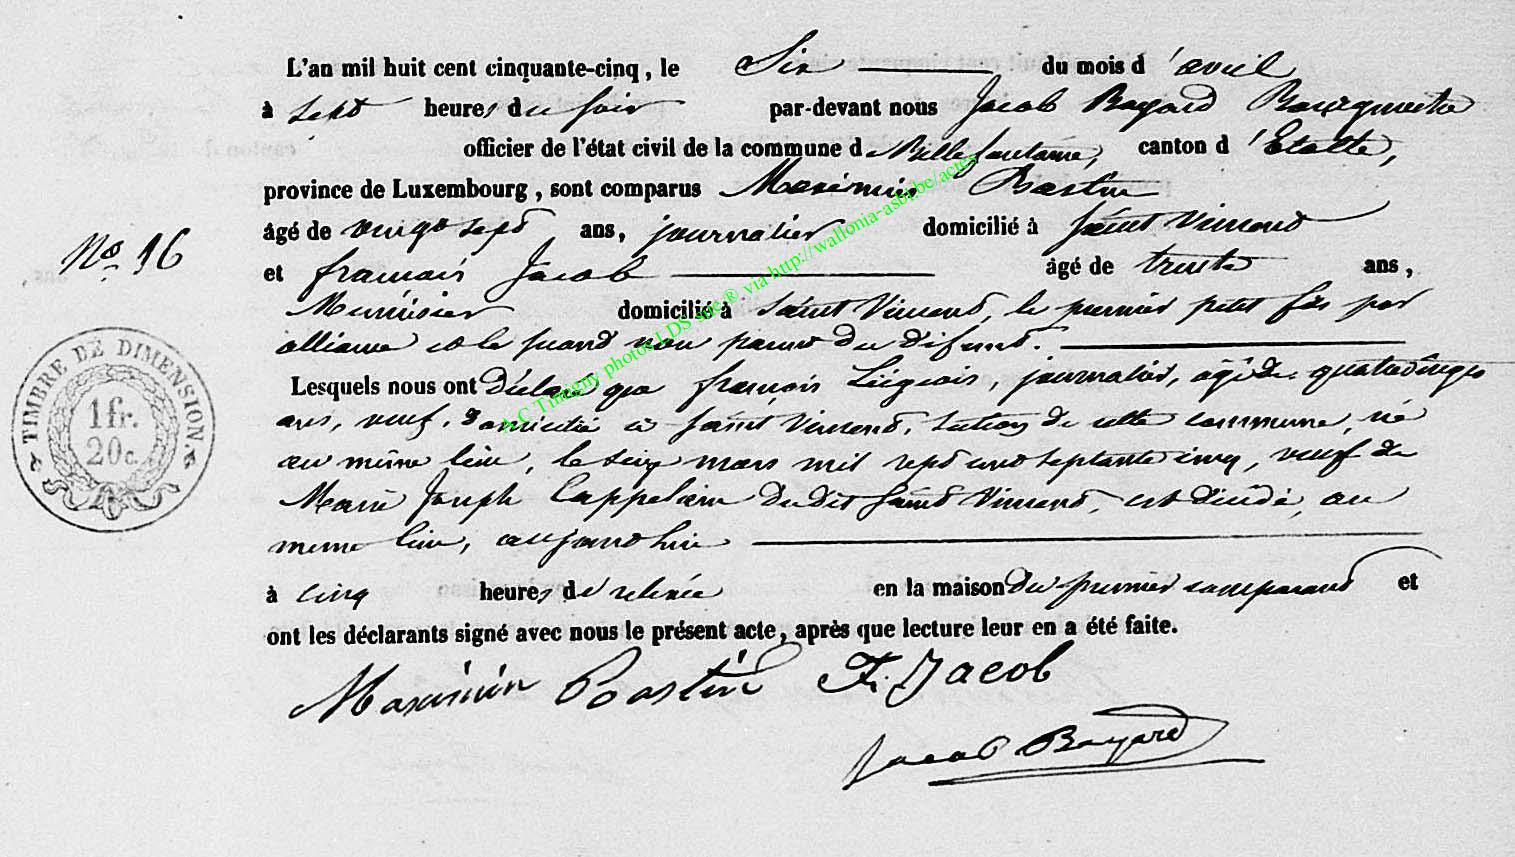 L'an mil huit cent cinquante-cinq, le Six du mois d'avril
à sept heures du soir par-devant nous Jacob Bayard Bourgmestre
officier de l'état civil de la commune d Bellefontaine, canton d'Etalle,
province de Luxembourg, sont comparus Maximin Bastin
âgé de vingt sept ans, journalier domicilié à Saint Vincent
N° 16
et françois Jacob âgé de trente ans,
Menuisier domicilié à Saint Vincent, le premier petit fils par
alliance et le second non parent du défunt.
Lesquels nous ont déclaré que françois Liégeois, journalier, âgé de quatrevingts
ans, veuf, domicilié à Saint Vincent, section de cette commune, né
au même lieu, le cinq mars mil sept cent septante cinq, veuf de
Marie Joseph Cappelière dudit Saint Vincent, est décédé, au
même lieu, aujourd'hui
à cinq heures de relevée en la maison du premier comparant et
ont les déclarants signé avec nous le présent acte, après que lecture leur en a été faite.
Maximin Bastin F. Jacob
Jacob Bayard
TIMBRE DE DIMENSION
1 fr.
20 c.
A.C Tintigny photos LDS sur ® via http://wallonia-asbl.be/actes